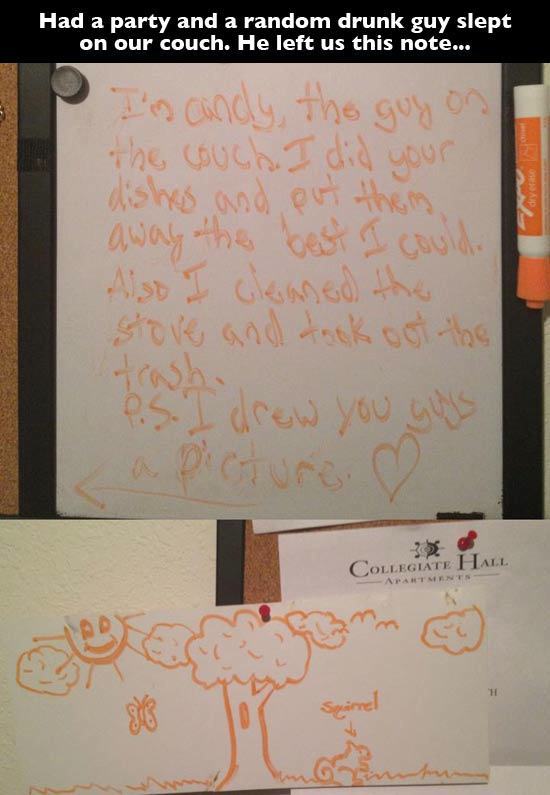 Had a party and a random drunk guy slept
on our couch. He left us this note...
I'm andy, the guy on
the couch. I did your
dishes and put them
away the best I could.
Also I cleaned the
stove and took out the
trash.
P.S. I drew you guys
a picture. ♡
EXPO
dry erase
COLLEGIATE HALL
APARTMENTS
squirrel
TH